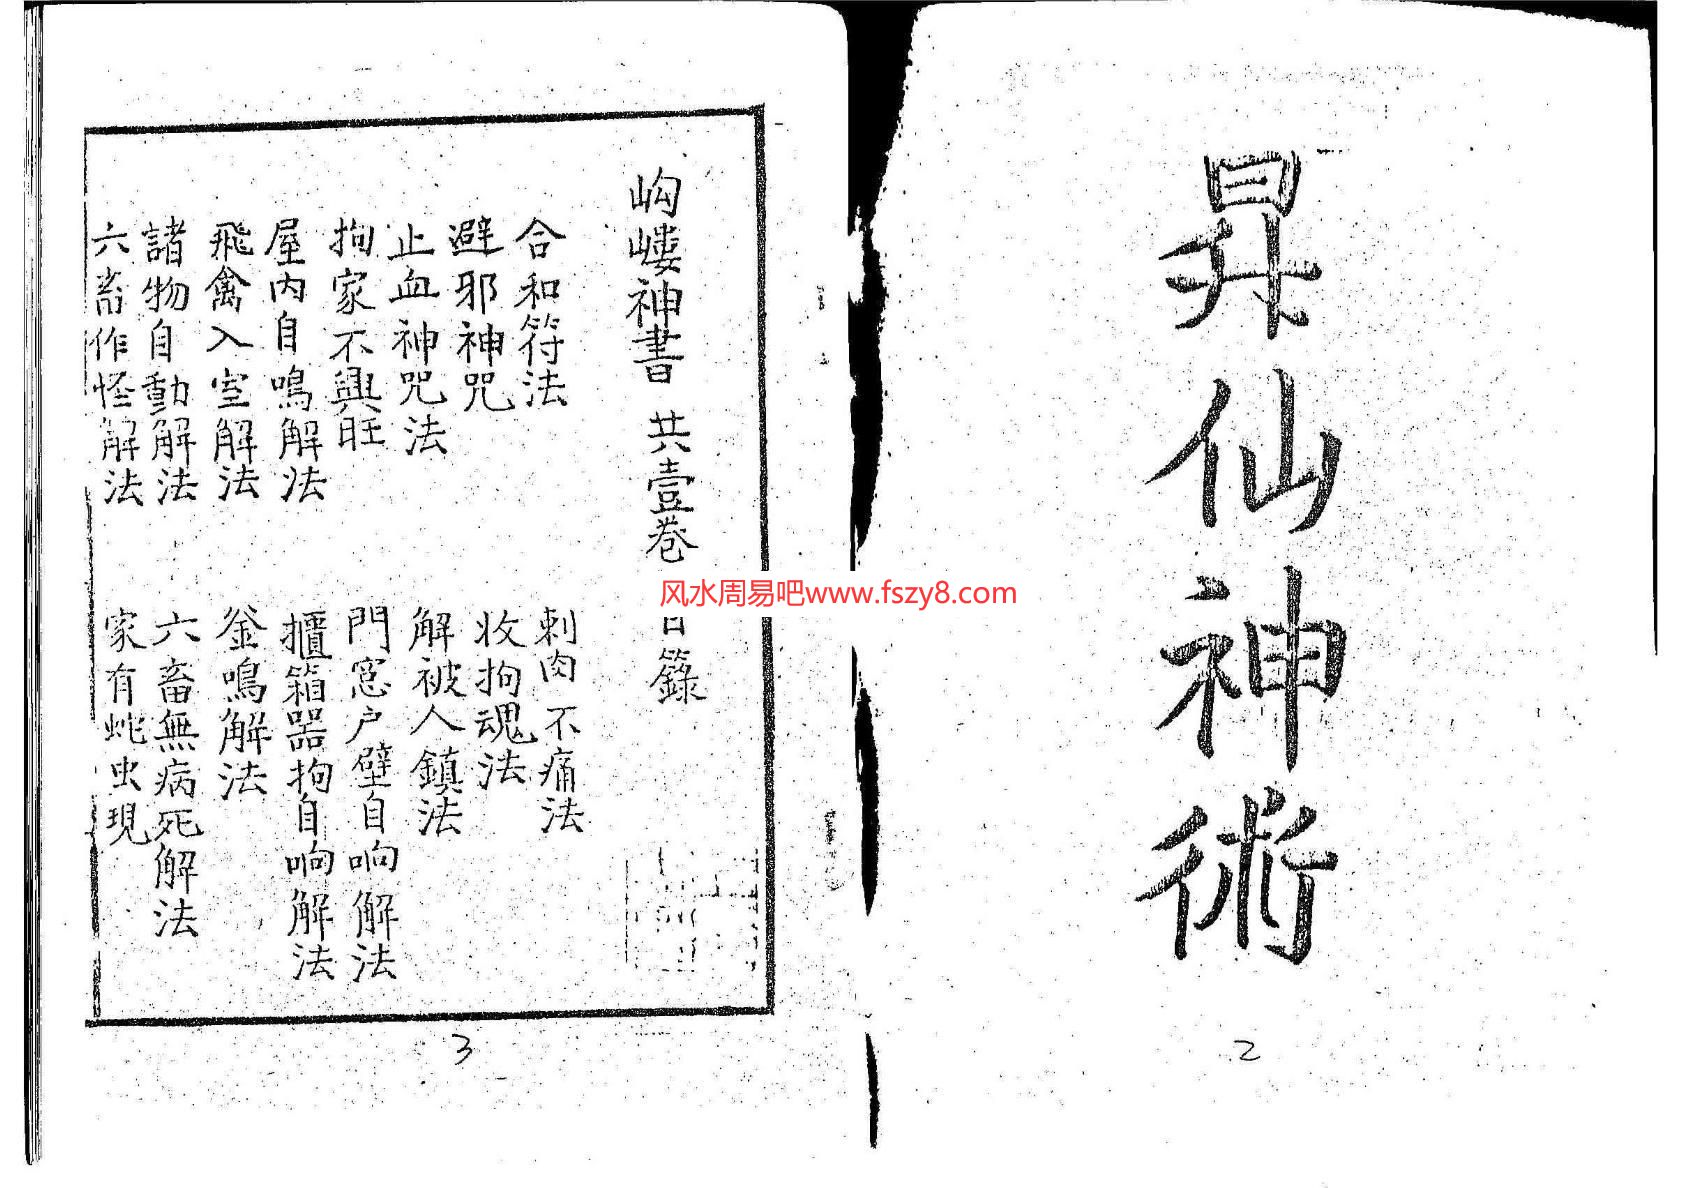 昇仙神術
2
岣嶁神書 共壹卷 目錄
合和符法
刺肉不痛法
避邪神咒
收拘魂法
止血神咒法
解被人鎮法
拘家不興旺
門窓户壁自响解法
屋內自鳴解法
擓箱器拘自响解法
飛禽入室解法
釜鳴解法
諸物自動解法
六畜無病死解法
六畜作怪解法
家有蛇虫現
3
风水周易吧www.fszy8.com